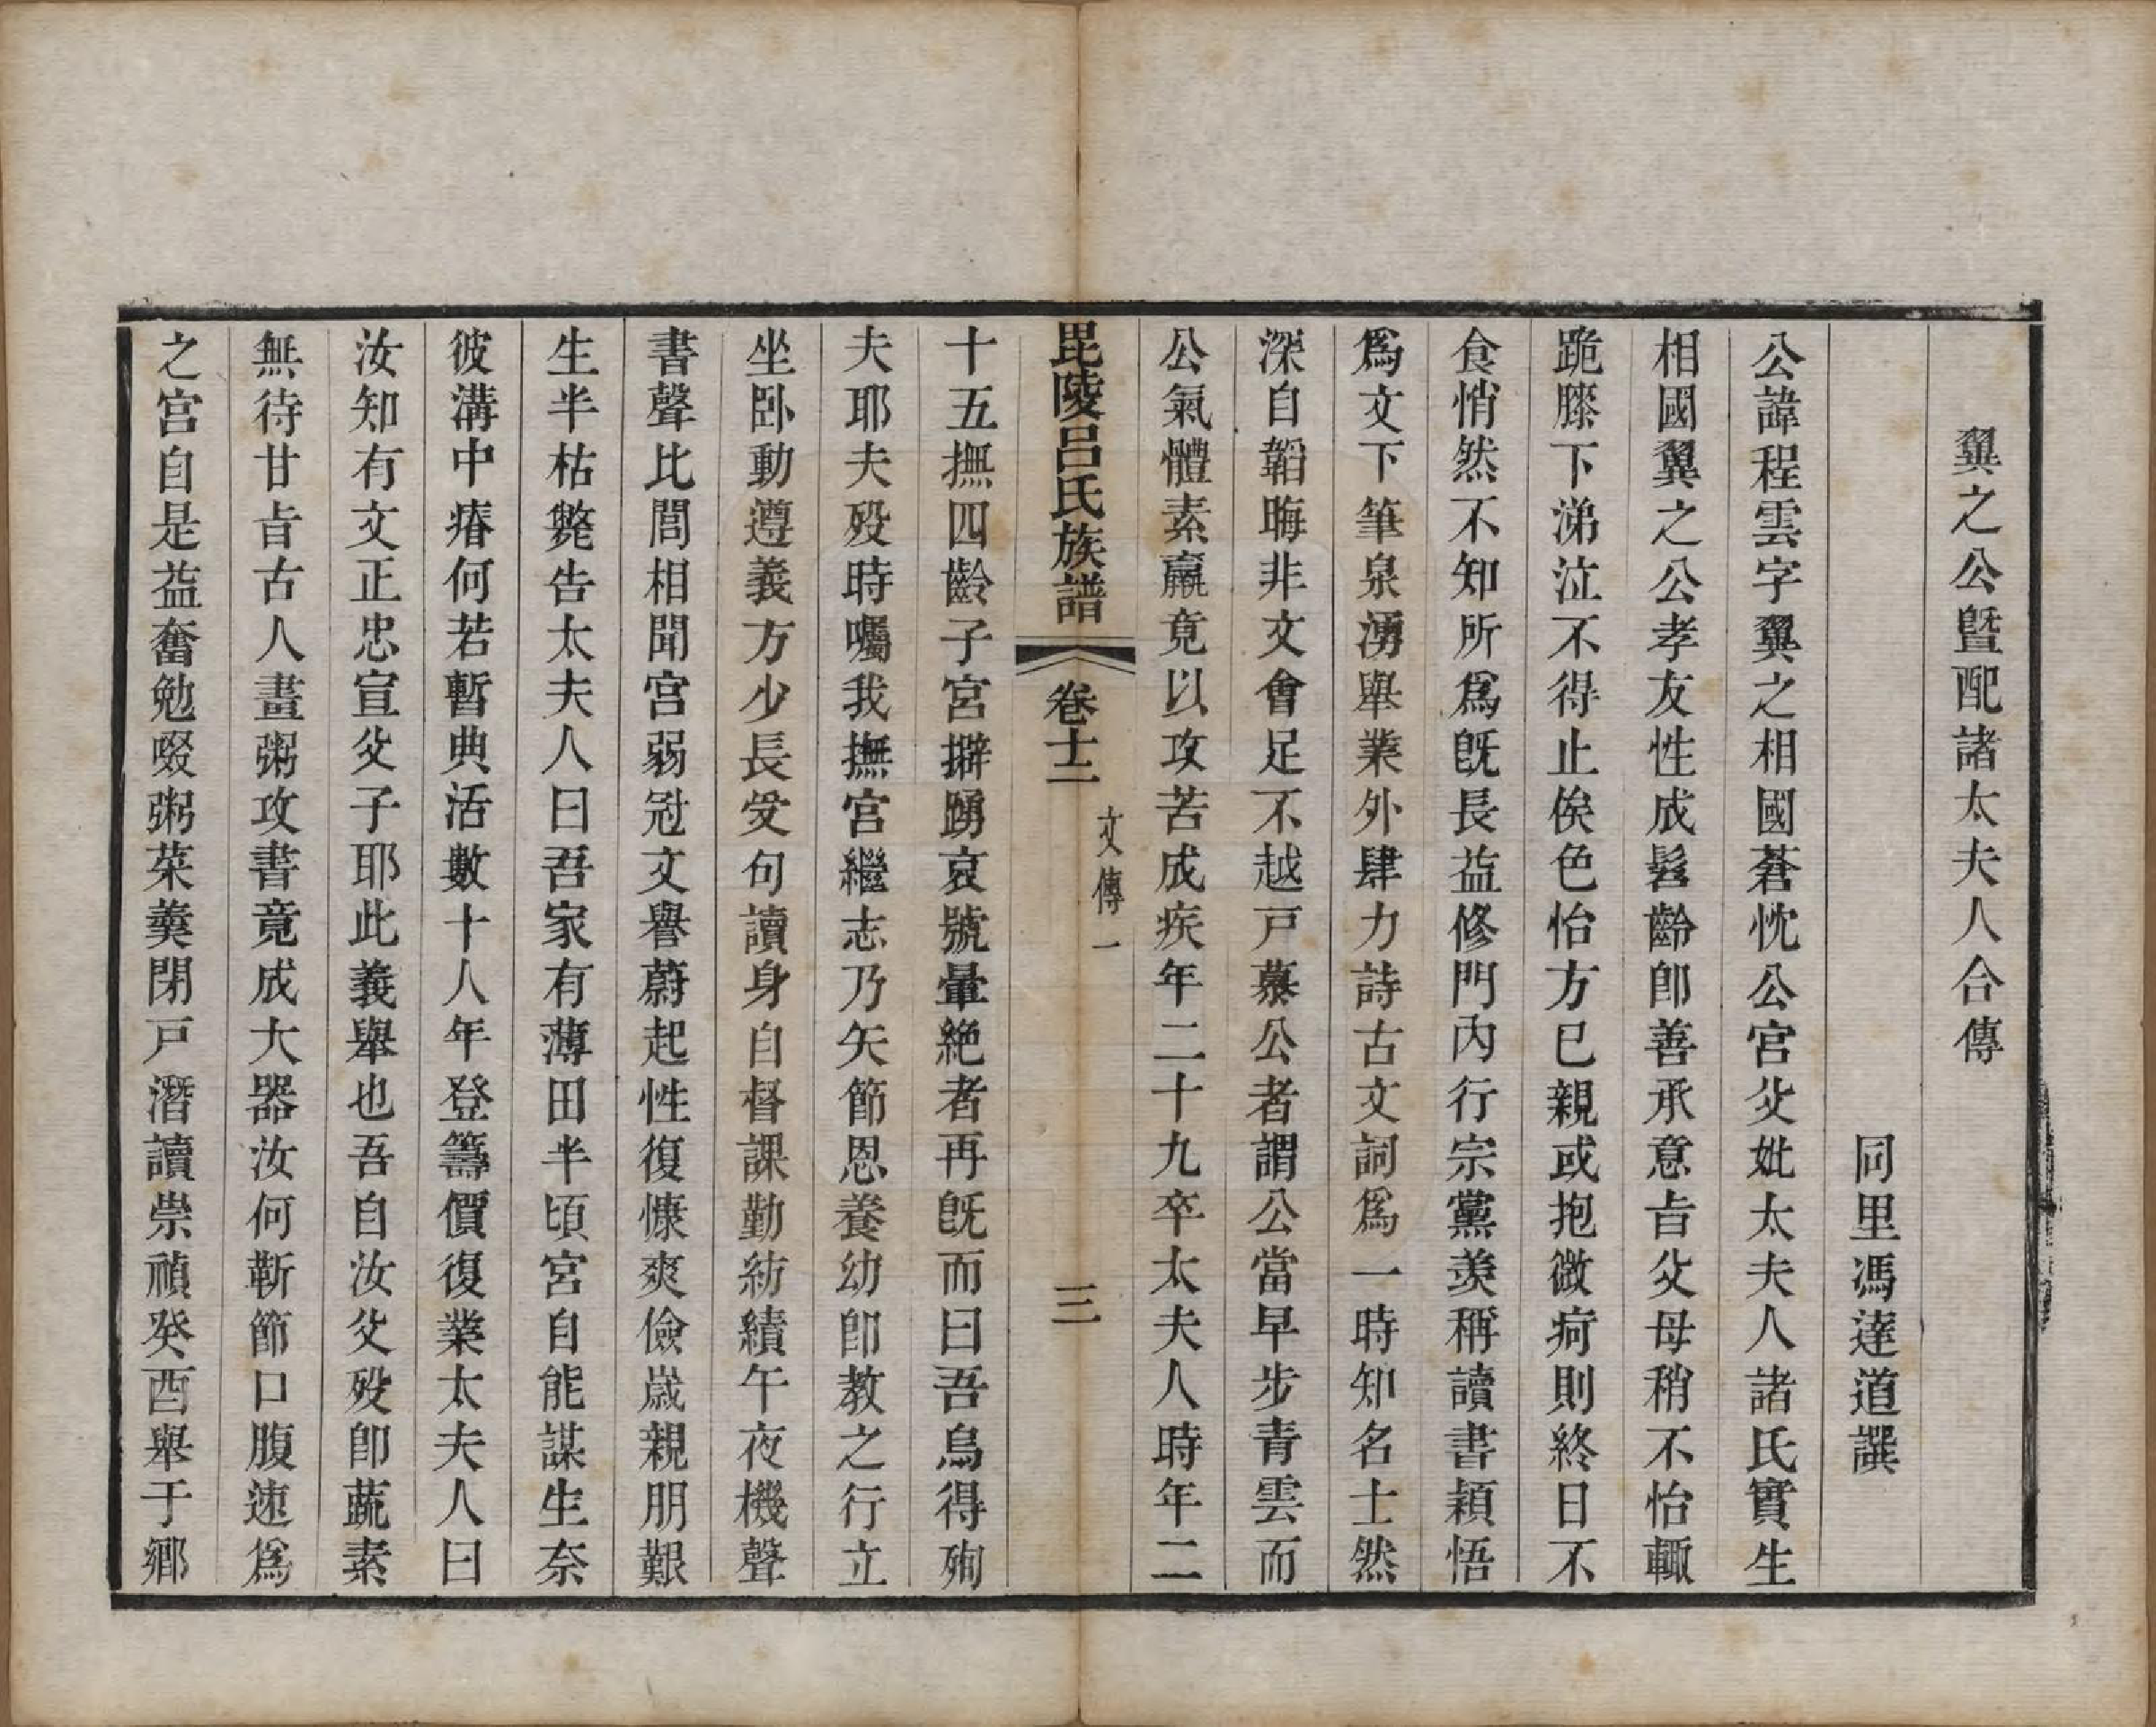 翼之公曁配諸太夫人合傳
同里馮達道譔
公諱程雲字翼之相國蒼忱公宮父妣太夫人諸氏實生
相國翼之公孝友性成髫齡卽善承意旨父母稍不怡輒
跪膝下涕泣不得止俟色怡方已親或抱微痾則終日不
食悄然不知所爲旣長益修門內行宗黨羨稱讀書穎悟
爲文下筆泉湧舉業外肆力詩古文詞爲一時知名士然
深自韜晦非文會足不越戸慕公者謂公當早步青雲而
公氣體素羸竟以攻苦成疾年二十九卒太夫人時年二
毘陵呂氏族譜 卷十二 文傳一 三
十五撫四齡子宮擗踴哀號暈絶者再旣而曰吾烏得殉
夫耶夫歿時囑我撫宮繼志乃矢節恩養幼卽教之行立
坐卧動遵義方少長受句讀身自督課勤紡績午夜機聲
書聲比閭相聞宮弱冠文譽蔚起性復慷爽儉歲親朋艱
生半枯斃告太夫人曰吾家有薄田半頃宮自能謀生奈
彼溝中瘠何若暫典活數十人年登籌價復業太夫人曰
汝知有文正忠宣父子耶此義舉也吾自汝父歿卽蔬素
無待甘旨古人畫粥攻書竟成大器汝何靳節口腹速爲
之宮自是益奮勉啜粥茱羹閉戸潛讀崇禎癸酉舉于鄉